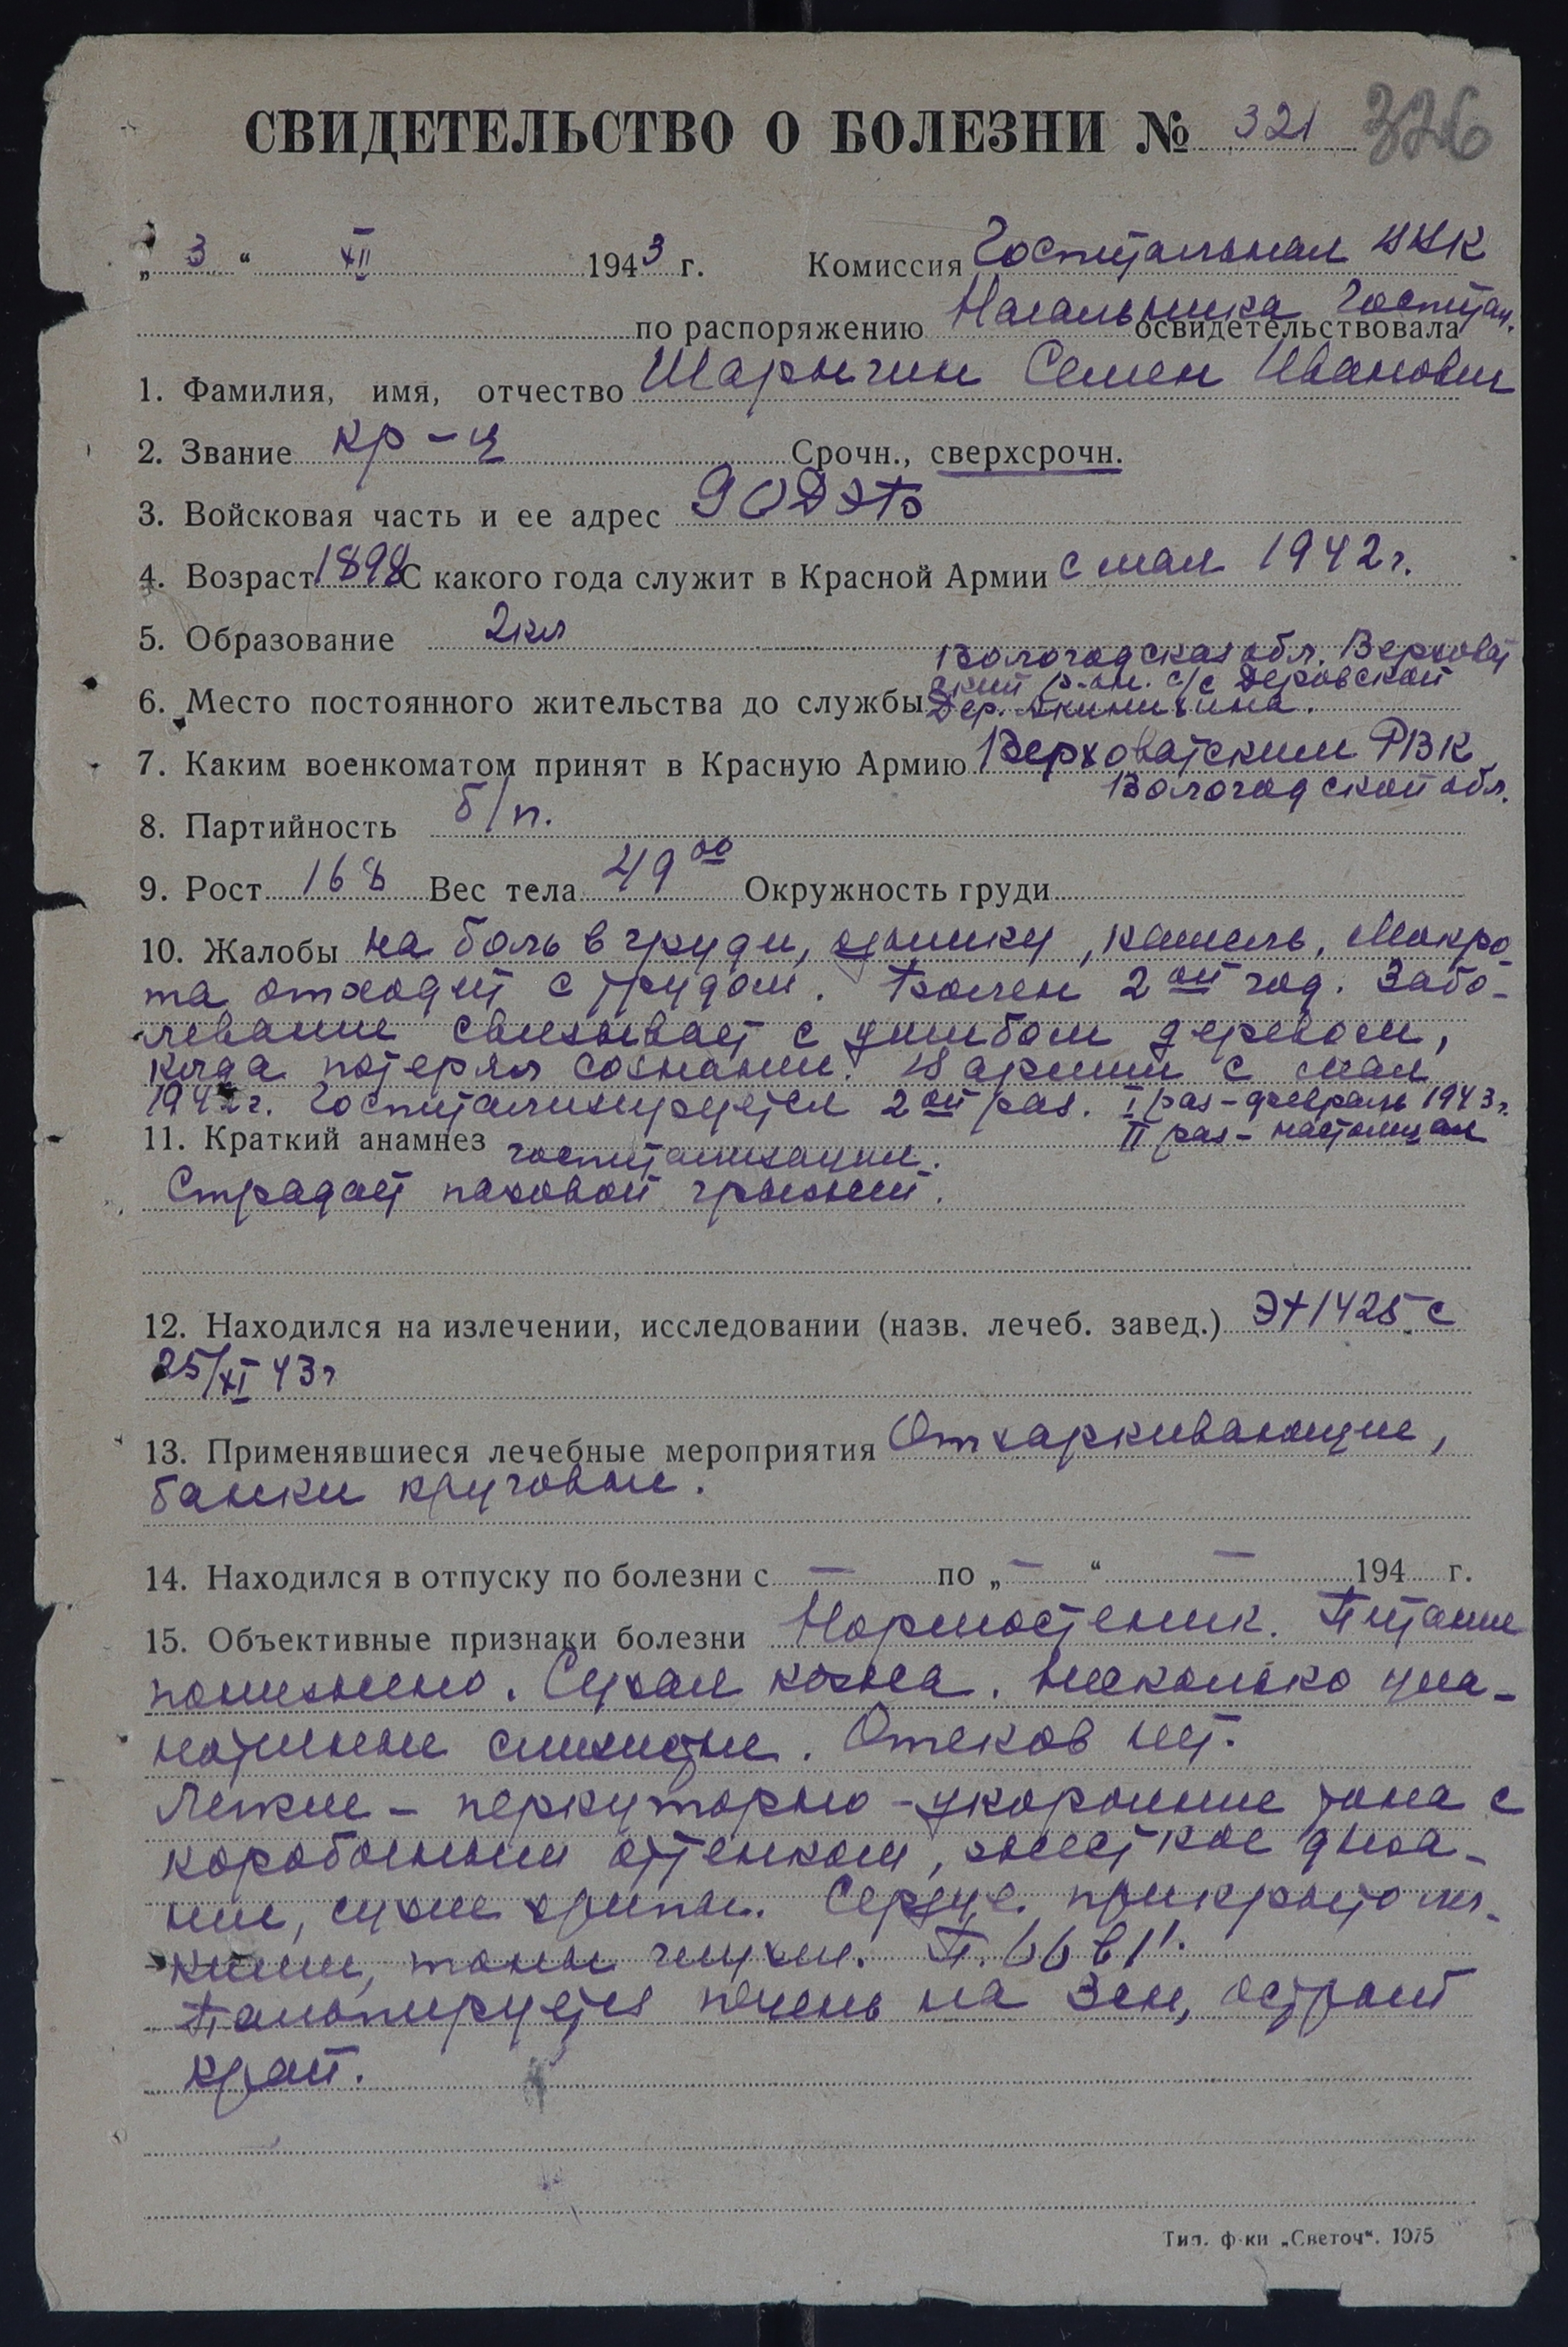 СВИДЕТЕЛЬСТВО О БОЛЕЗНИ № 321 326
„3“ XII 1943 г. Комиссия Госпитальная ВВК
по распоряжению Начальника Госпитал.
освидетельствовала
1. Фамилия, имя, отчество Шарыгин Семен Иванович
2. Звание кр-ц Срочн., сверхсрочн.
3. Войсковая часть и ее адрес 9 ОДЭБ
4. Возраст 1898 С какого года служит в Красной Армии с мая 1942 г.
5. Образование 2 кл
Вологодская обл. Верховаж
ский р-он. с/с Деровской
6. Место постоянного жительства до службы Дер.
7. Каким военкоматом принят в Красную Армию Верховажским РВК
Вологодской обл.
8. Партийность б/п.
9. Рост 168 Вес тела 49 00 Окружность груди
10. Жалобы на боль в груди, одышку, кашель, Мокро-
та отходит с трудом. Болен 2ой год. Забо-
левание связывает с ушибом деревом,
когда потерял сознание. В армии с мая
1942 г. Госпитализируется 2ой раз. I раз - февраль 1943 г.
II раз - настоящая
11. Краткий анамнез госпитализации.
Страдает паховой грыжей.
12. Находился на излечении, исследовании (назв. лечеб. завед.) ЭГ 1425 с
25/XI 43 г
13. Применявшиеся лечебные мероприятия Отхаркивающие,
банки круговые.
14. Находился в отпуску по болезни с — по „—“ — 194 г.
15. Объективные признаки болезни Нормостеник. Питание
понижено. Сухая кожа. Несколько циа-
нотичные слизистые. Отеков нет.
Легкие - перкуторно - укорочение тона с
коробочным оттенком, жесткое дыха-
ние, сухие хрипы. Сердце прикрыто лег-
кими, тоны глухие. П. 66 в 1'.
Пальпируется печень на 3 см, острый
край.
Тип. ф-ки „Светоч“. 1075